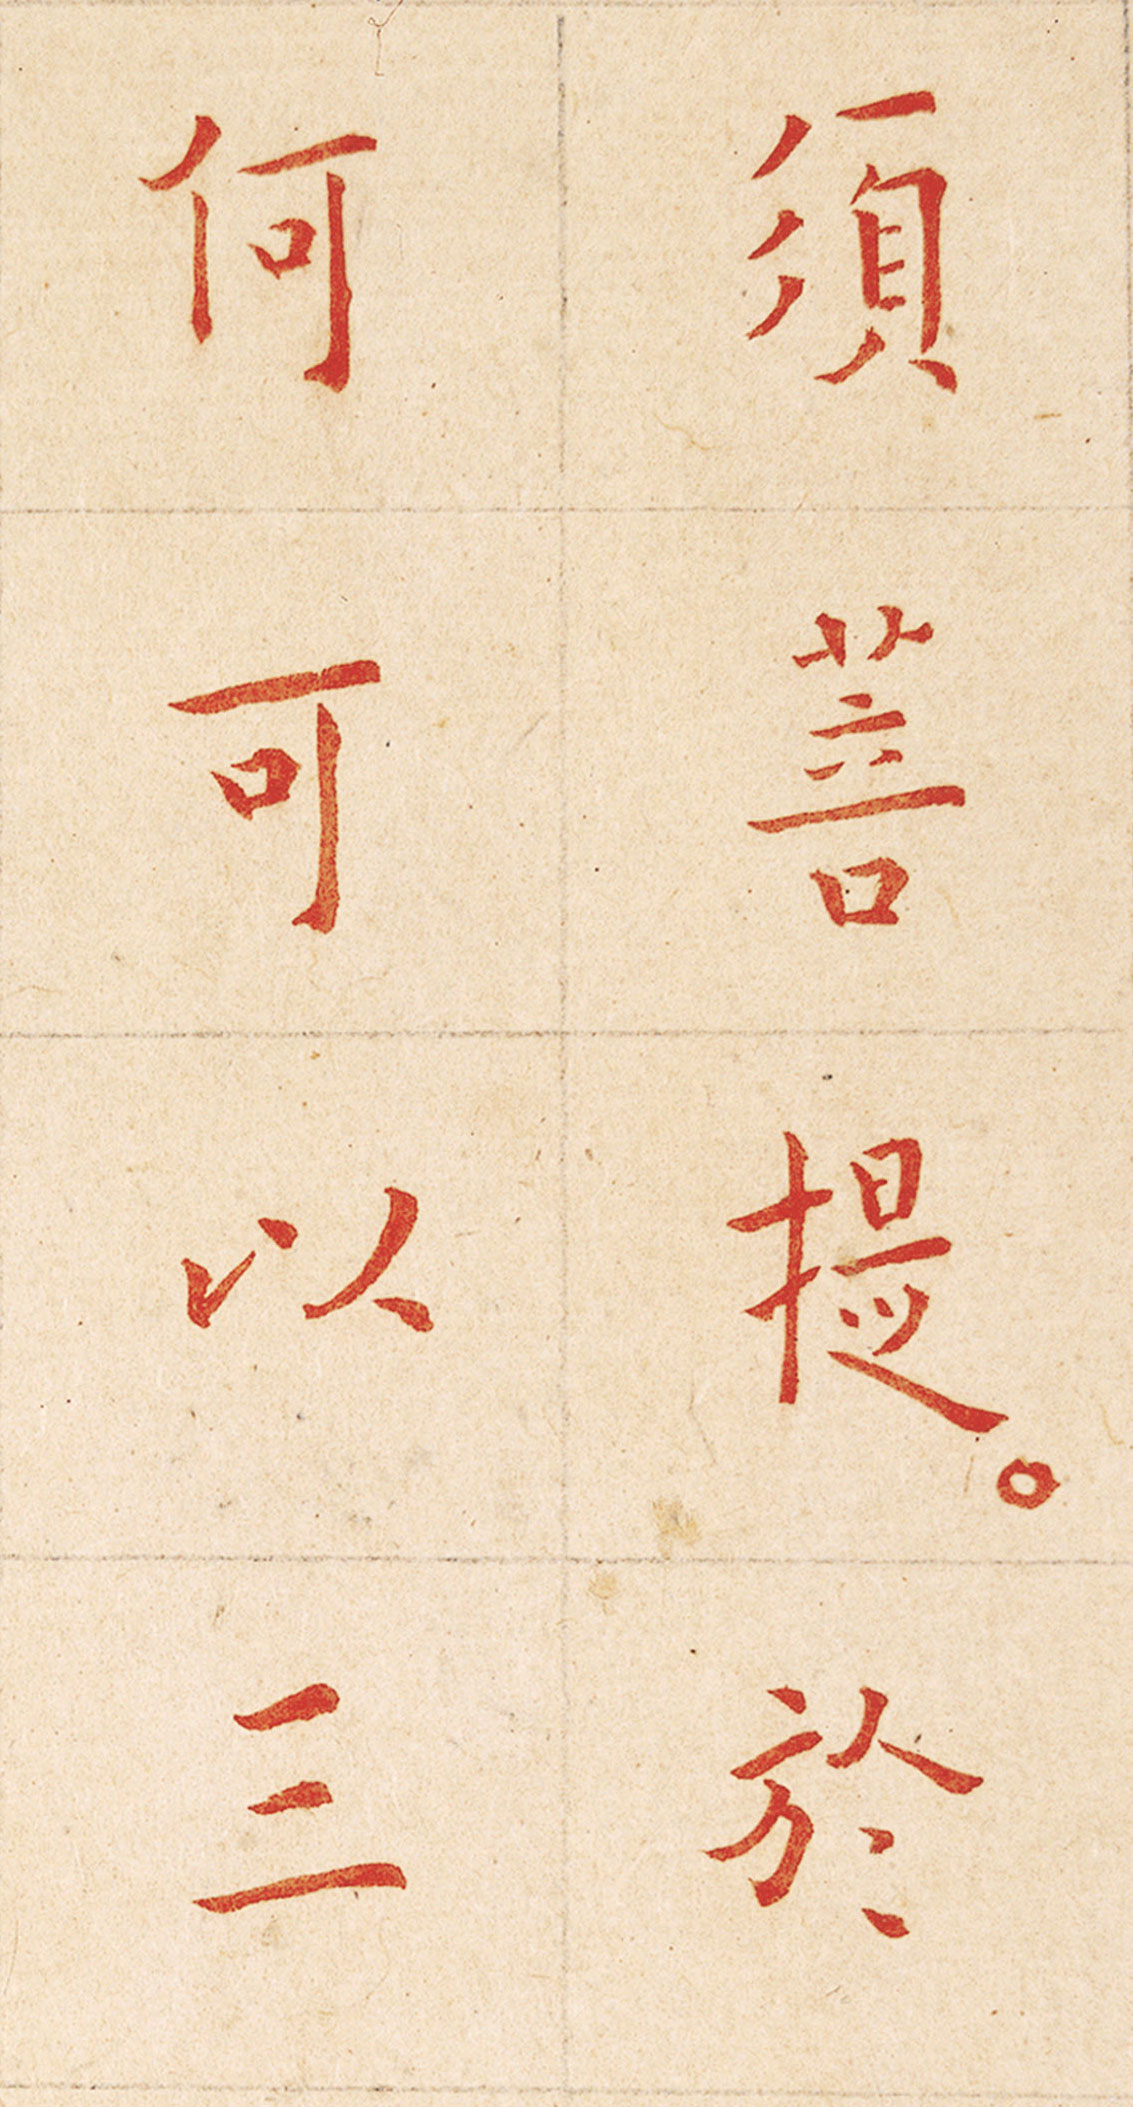 須菩提。於
何可以三